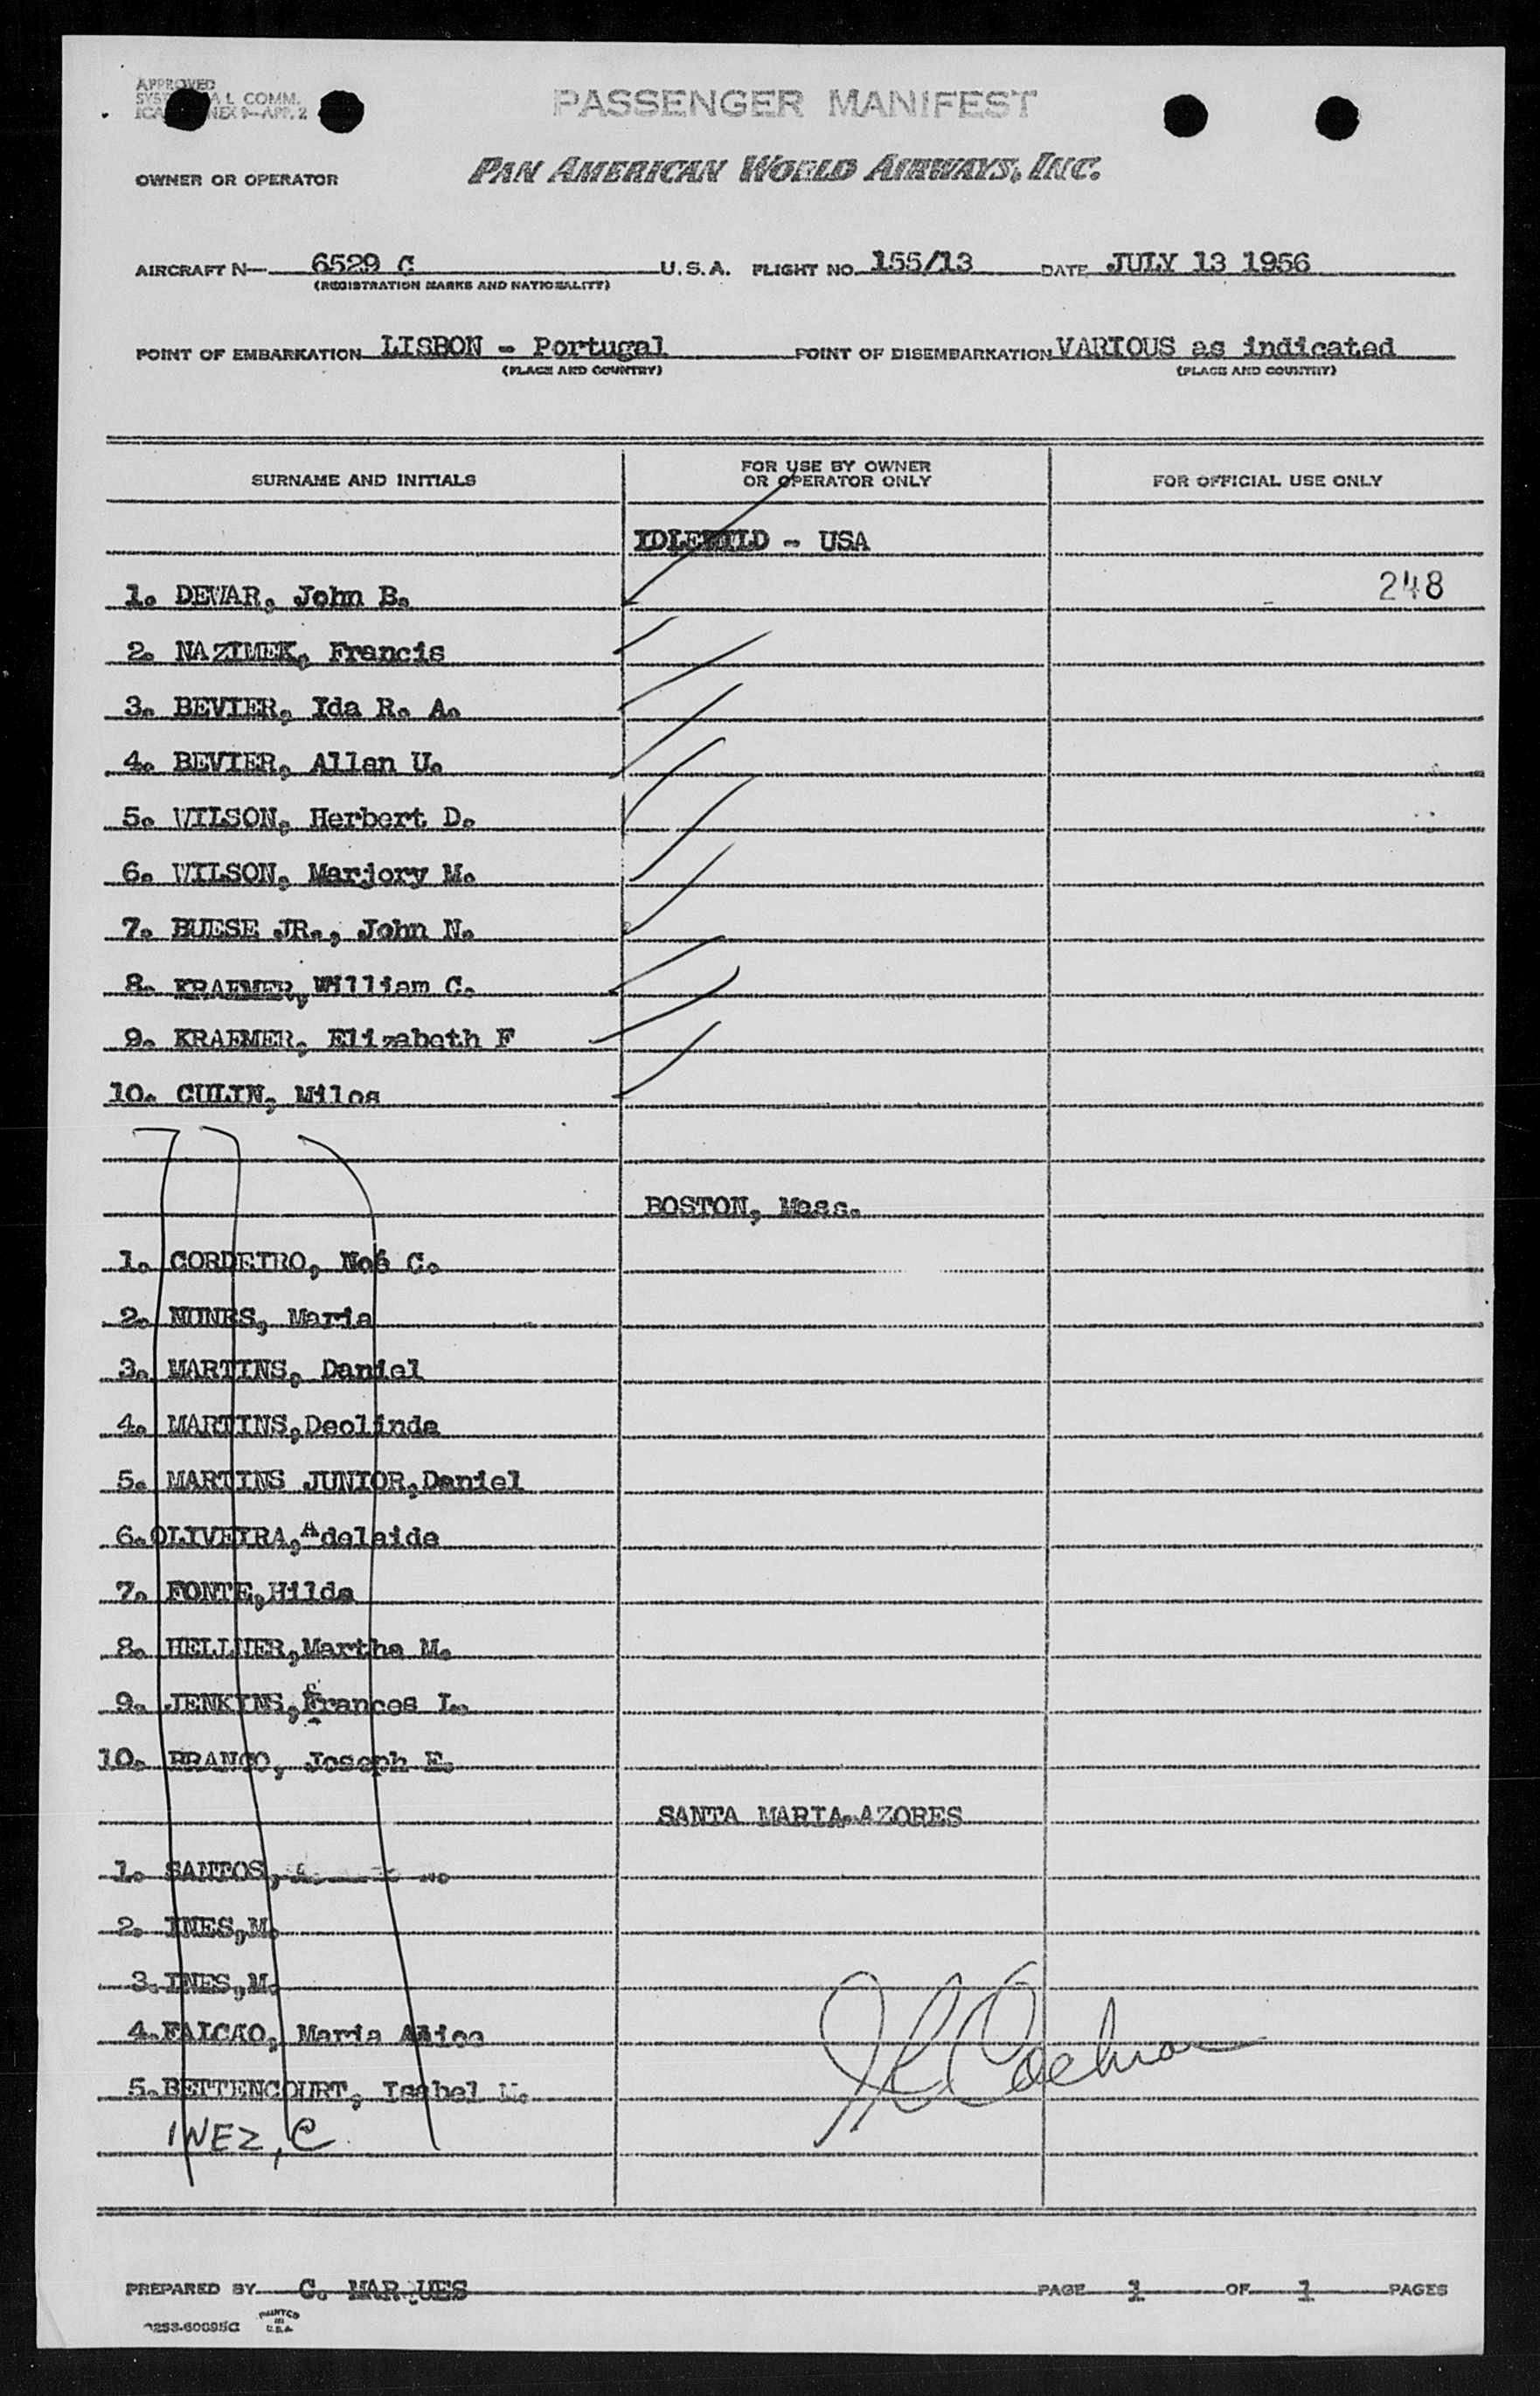 APPROVED
COMM.
9-APP. 2
PASSENGER MANIFEST
OWNER OR OPERATOR PAN AMERICAN WORLD AIRWAYS, INC.
AIRCRAFT N- 6529 C U.S.A. FLIGHT NO. 155/13 DATE JULY 13 1956
(REGISTRATION MARKS AND NATIONALITY)
POINT OF EMBARKATION LISBON - Portugal POINT OF DISEMBARKATION VARIOUS as indicated
(PLACE AND COUNTRY) (PLACE AND COUNTRY)
SURNAME AND INITIALS FOR USE BY OWNER OR OPERATOR ONLY FOR OFFICIAL USE ONLY
IDLEWILD - USA
1. DEWAR, John B. 248
2. NAZIMEK, Francis
3. BEVIER, Ida R. A.
4. BEVIER, Allan U.
5. WILSON, Herbert D.
6. WILSON, Marjory M.
7. BUESE JR., John N.
8. KRAEMER, William C.
9. KRAEMER, Elizabeth F
10. CULIN, Milos
BOSTON, Mass.
1. CORDEIRO, Noé C.
2. NUNES, Maria
3. MARTINS, Daniel
4. MARTINS, Deolinda
5. MARTINS JUNIOR, Daniel
6. OLIVEIRA, Adelaide
7. FONTE, Hilda
8. HELLNER, Martha M.
9. JENKINS, Frances L.
10. BRANCO, Joseph E.
SANTA MARIA-AZORES
1. SANTOS,
2. INES, M.
3. INES, M.
4. FALCAO, Maria Alice
5. BETTENCOURT, Isabel M.
INEZ, C.
PREPARED BY C. MARQUES PAGE 1 OF 1 PAGES
PRINTED
IN
U.S.A.